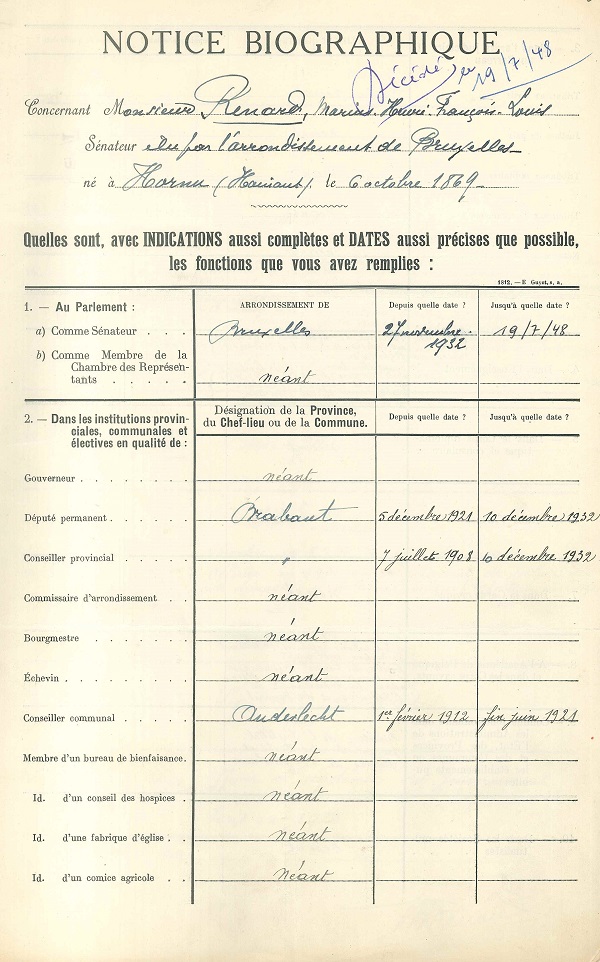 NOTICE BIOGRAPHIQUE
Décédé le 19/7/48
Concernant Monsieur Renard, Marius-Henri-François-Louis
Sénateur élu par l'arrondissement de Bruxelles
né à Hornu (Hainaut). le 6 octobre 1869
Quelles sont, avec INDICATIONS aussi complètes et DATES aussi précises que possible,
les fonctions que vous avez remplies :
1812. — E. Guyot, s. a.
1. — Au Parlement : ARRONDISSEMENT DE Depuis quelle date ? Jusqu'à quelle date ?
a) Comme Sénateur . . . Bruxelles 27 novembre 1932 19/7/48
b) Comme Membre de la
Chambre des Représen-
tants . . . . . néant
2. — Dans les institutions provin- Désignation de la Province, Depuis quelle date ? Jusqu'à quelle date ?
ciales, communales et du Chef-lieu ou de la Commune.
électives en qualité de :
Gouverneur . . . . . . . néant
Député permanent . . . . . Brabant 5 décembre 1921 10 décembre 1932
Conseiller provincial . . . . . " 7 juillet 1908 10 décembre 1932
Commissaire d'arrondissement . . néant
Bourgmestre . . . . . . . néant
Échevin . . . . . . . . . néant
Conseiller communal . . . . . Anderlecht 1er février 1912 fin juin 1921
Membre d'un bureau de bienfaisance. néant
Id. d'un conseil des hospices . néant
Id. d'une fabrique d'église . . néant
Id. d'un comice agricole . . néant